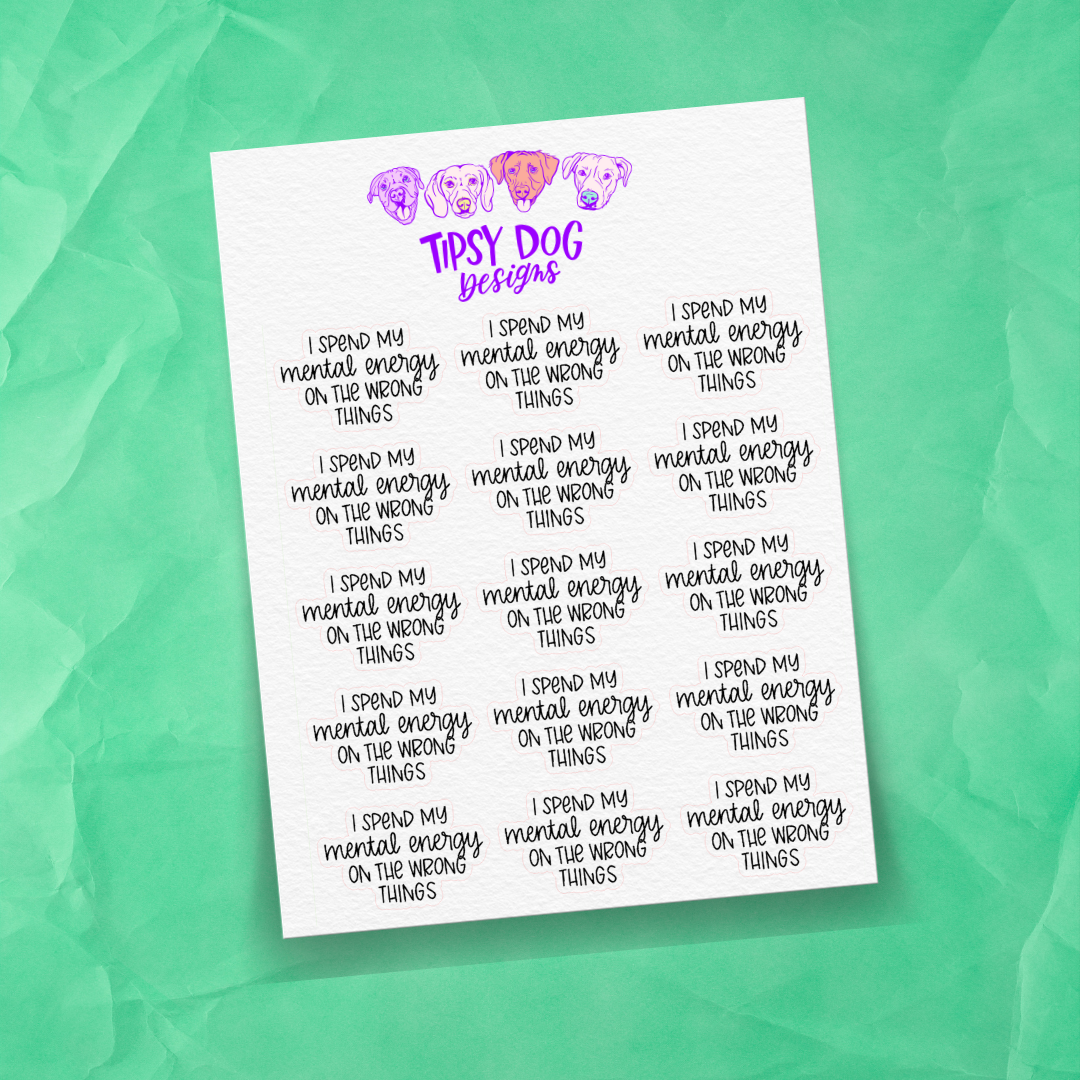 TIPSY DOG
Designs
I SPEND MY
mental energy
ON THE WRONG
THINGS
I SPEND MY
mental energy
ON THE WRONG
THINGS
I SPEND MY
mental energy
ON THE WRONG
THINGS
I SPEND MY
mental energy
ON THE WRONG
THINGS
I SPEND MY
mental energy
ON THE WRONG
THINGS
I SPEND MY
mental energy
ON THE WRONG
THINGS
I SPEND MY
mental energy
ON THE WRONG
THINGS
I SPEND MY
mental energy
ON THE WRONG
THINGS
I SPEND MY
mental energy
ON THE WRONG
THINGS
I SPEND MY
mental energy
ON THE WRONG
THINGS
I SPEND MY
mental energy
ON THE WRONG
THINGS
I SPEND MY
mental energy
ON THE WRONG
THINGS
I SPEND MY
mental energy
ON THE WRONG
THINGS
I SPEND MY
mental energy
ON THE WRONG
THINGS
I SPEND MY
mental energy
ON THE WRONG
THINGS